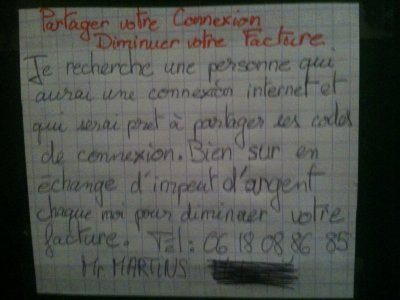 Partager votre Connexion
Diminuer votre Facture.
Je recherche une personne qui
aurai une connexion internet et
qui serai pret à partager ses codes
de connexion. Bien sur en
échange d'impeut d'argent
chaque moi pour diminuer votre
facture. Tél: 06 18 08 86 85
Mr MARTINS